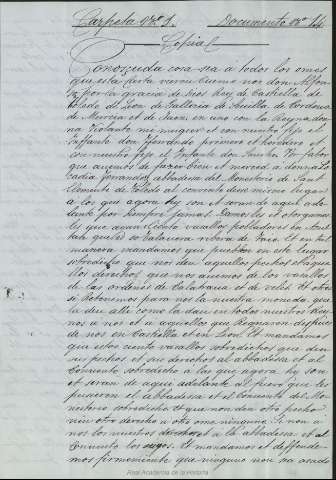 Carpeta Nº 8. Documento nº 14
Copia
Conosçuda cosa sea a todos los omes
que esta carta vieren cuemo nos don Alfon
so por la gracia de dios Rey de Castiella de
Toledo de Leon de Gallicia de Sevilla de Cordova
de Murcia et de Jaen, en uno con la Reyna don
na Violante mi mugier et con nuestro fijo el
Iffante don Ferrando primero et heredero et
con nuestro fijo el Infante don Sancho. Por sabor
que auemos de fazer bien et merced a donna Lo
cadia ferrandez abbadesa del Monesterio de San
Clemente de Toledo al convento desse mismo lugar
a los que agora hy son et seran de aqui ade
lante por siempre jamas. Damosles et otorgamos
les que ayan ciento vasallos pobladores en
tah que es so Talavera ribera de Tajo. Et en tal
manera mandamos que pueblen en este
sobredicho que nos den aquellos pechos et aque
llos derechos que nos avemos de los vasallos
de las ordenes de Calatrava et de Velés. Et otro
si retenemos para nos la nuestra moneda que
la den alli como la dan en todos nuestros Rey
nos a nos et a aquellos que Regnaren despues
de nos en Castilla et en Leon. Et mandamos
que estos ciento vasallos sobredichos que den
sus pechos et sus derechos al abbadesa et al
Convento sobredicho a las que agora hy son
et seran de aqui adelante al fuero que les
pusieren el abbadesa et el Convento del Mo
nesterio sobredicho et que non den otro pecho
nin otro derecho a otro ome ninguno. Si non a
nos los nuestros derechos et a la abbadesa et al
Convento los suyos. Et mandamos et deffende
mos firmemiente que ninguno non sea osado
Real Academia de la Historia